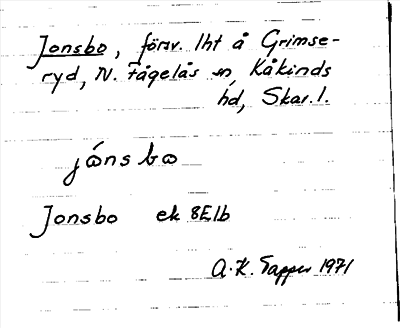 Jonsbo, försv. lht å Grimse-
ryd, N. Fågelås sn, Kåkinds
hd, Skar. l.
jónsbo
Jonsbo ek 8E1b
A. K. Tapper 1971